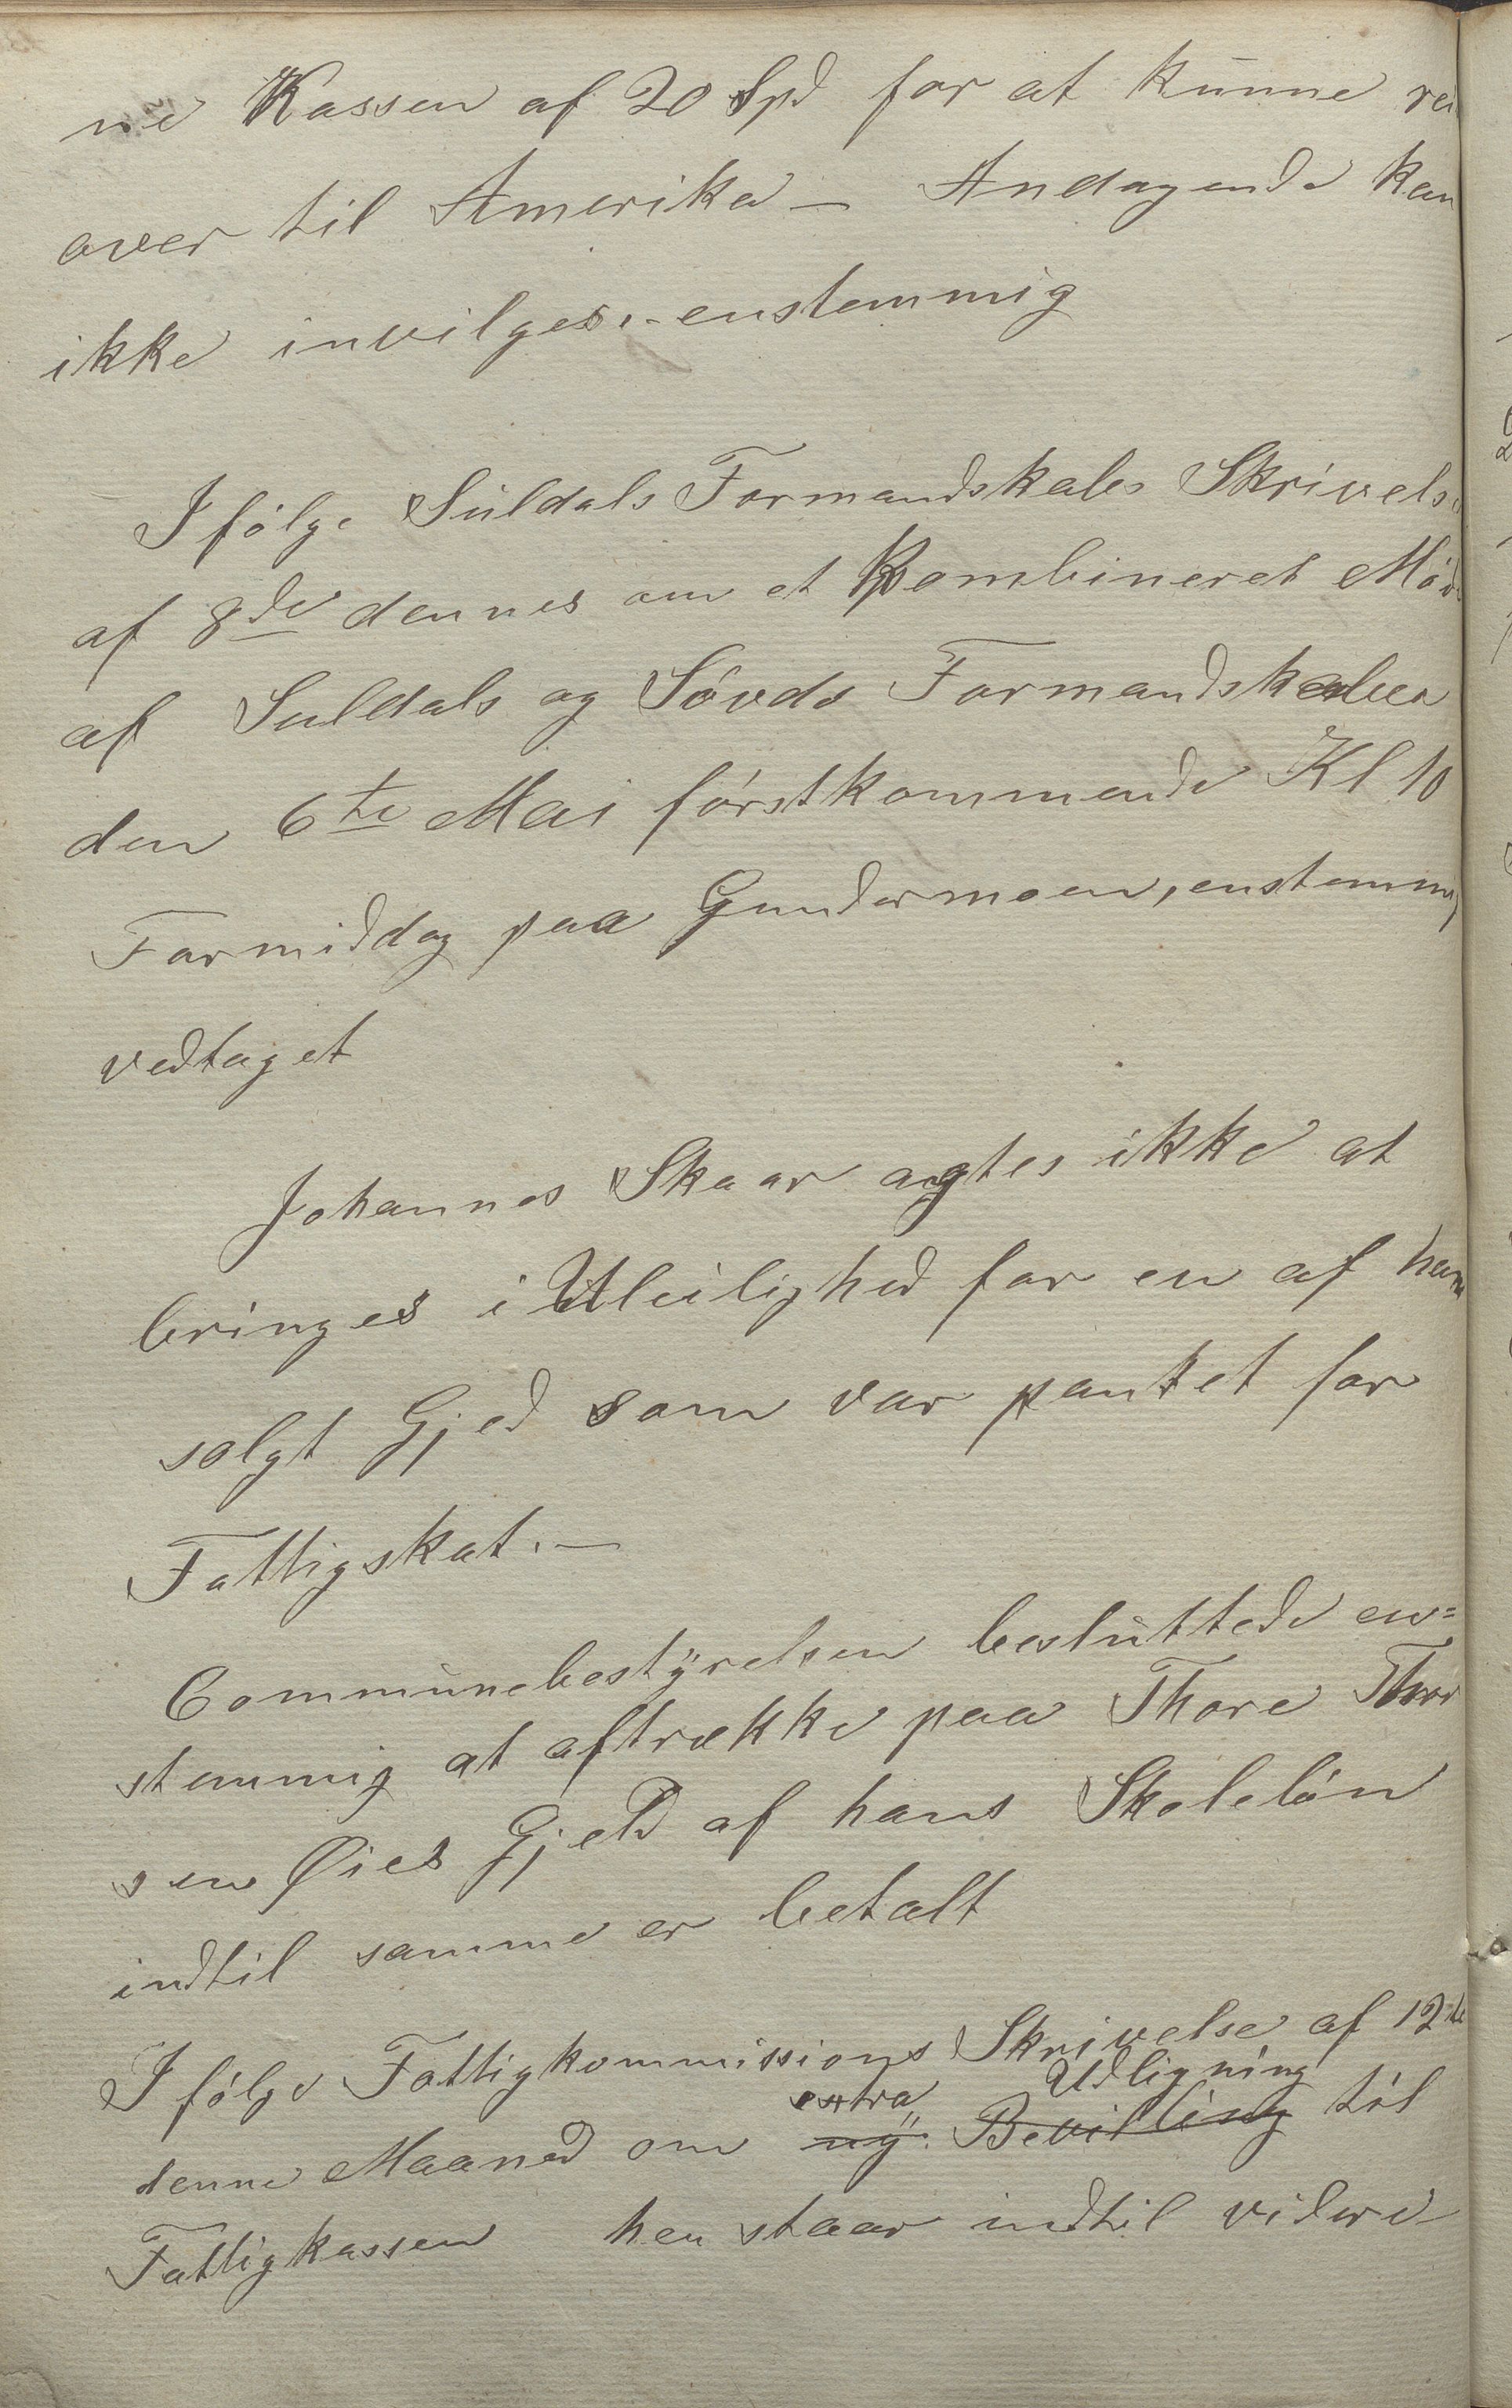 ne Kassen af 20 Spd for at kunne rei
over til Amerika — Andagende kan
ikke invilges.- enstemmig
Ifölge Suldals Formandskabs Skrivelse
af 8de dennes om et Kombineret Möde
af Suldals og Søvds Formandskaber
den 6te Mai förstkommende Kl 10
Formiddag paa Gundersmoen, enstemmig
vedtaget
Johannes Skaar agtes ikke at
bringes i Uleilighed for en af ham
solgt Gjed som var pantet for
Fattigskat. —
Communebestyrelsen besluttede en=
stemmig at aftrække paa Thore Thor
sen Øies Gjeld af hans Skolelön
indtil samme er betalt
Ifölge Fattigkommissions Skrivelse af 12te
extra Udligning
denne Maaned om ny Bevilling til
Fattigkassen henstaar indtil videre